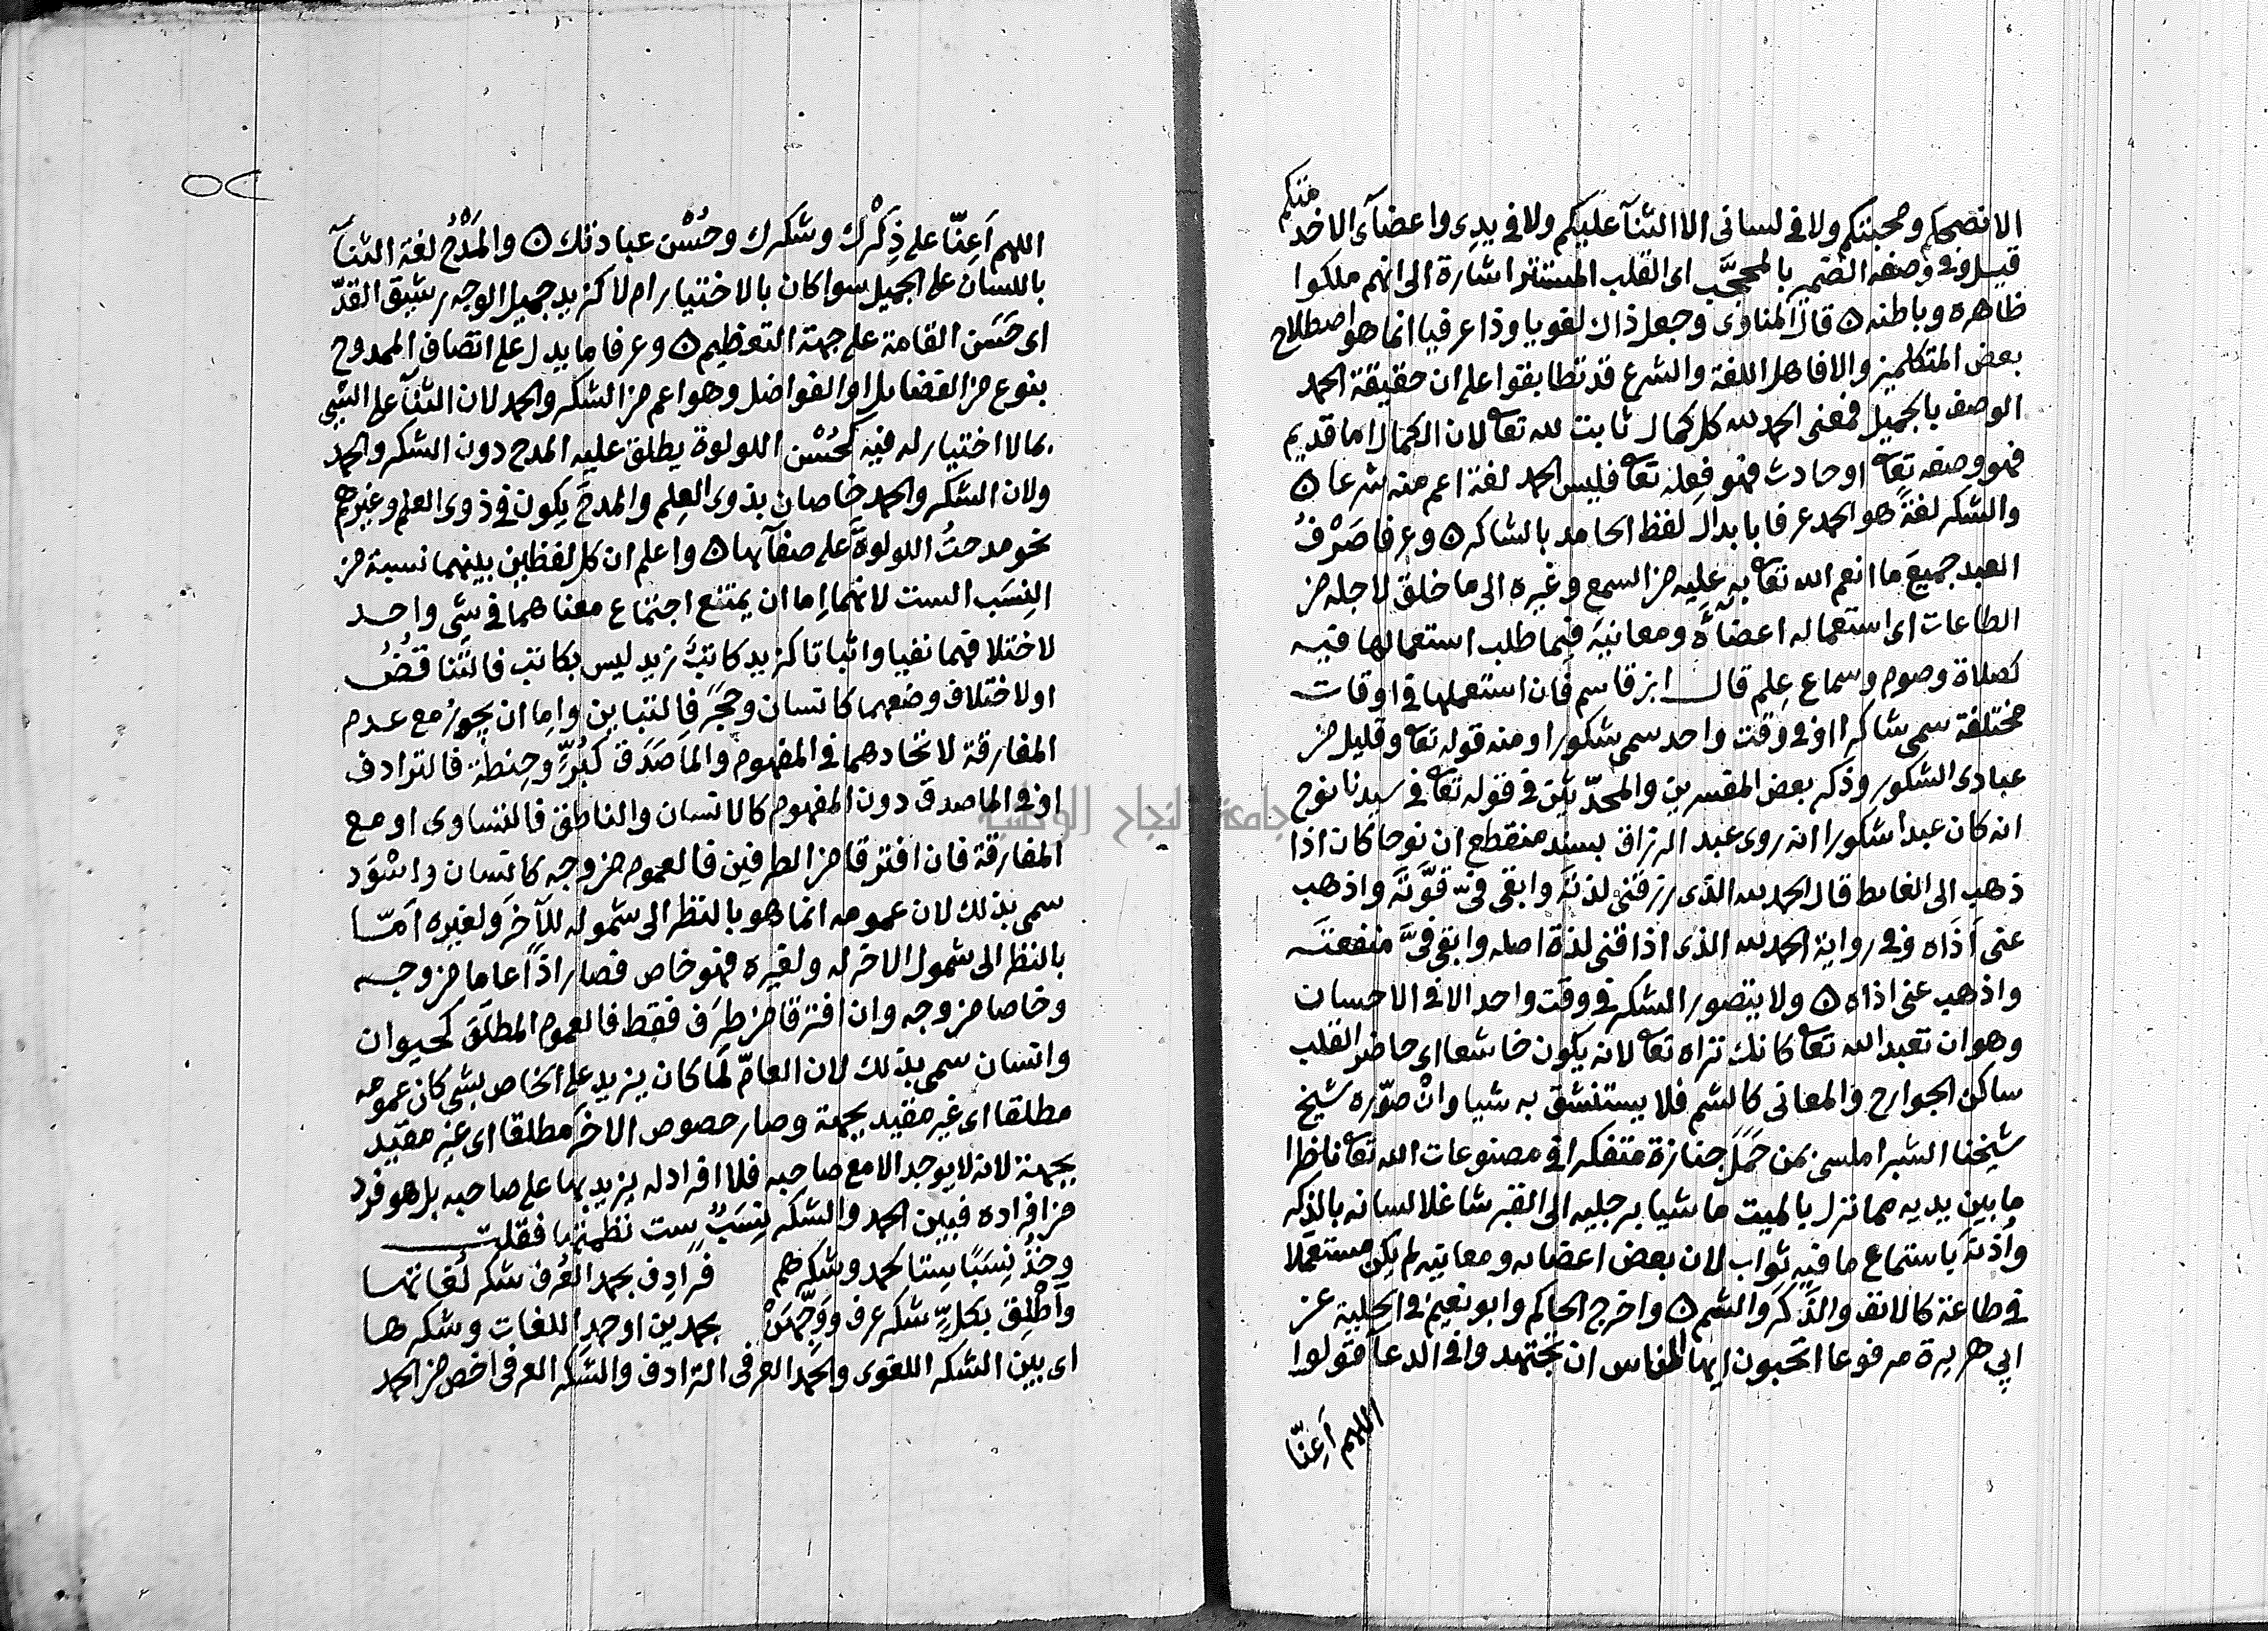 الا نصحكم ومحبتكم ولا في لساني الا الثنآ عليكم ولا في يدي واعضآى الاخد
منكم
قيل وفي وصفه الضمير بالمحجَّب اى القلب المستتر اشارة الى انهم ملكوا
ظاهره وباطنه ه قال المناوى وجعل ذاك لغويا وذا عرفيا انما هو اصطلاح
بعض المتكلمين والا فاهل اللغة والشرع قد تطابقوا على ان حقيقة الحمد
الوصف بالجميل فمعنى الحمد لله كل كمال ثابت لله تعا لان الكمال اما قديم
فهو وصفه تعا او حادث فهو فِعله تعا فليس الحمد لغة اعم منه شرعا ه
والشكر لغةً هو الحمد عرفا بابدال لفظ الحامد بالشاكر ه وعرفا صَرْفُ
العبد جميعَ ما انعم الله تعا به عليه من السمع وغيره الى ما خلق لاجله من
الطاعات اى استعماله اعضآءَه ومعانيَه فيما طلب استعمالها فيه
كصلاة وصوم وسماع عِلم قال ابن قاسم فان استعملها في اوقات
مختلفة سمى شاكرا او في وقت واحد سمى شكورا ومنه قوله تعا وقليل من
عبادى الشكور وذكر بعض المفسرين والمحدّثين في قوله تعا في سيدنا نوح
انه كان عبدا شكورا انه روى عبد الرزاق بسند منقطع ان نوحا كان اذا
ذهب الى الغايط قال الحمد لله الذى رزقنى لذته وابقى فيّ قوَّته واذهب
عنى اَذَاه وفي رواية الحمد لله الذى اذاقنى لذة اصله وابقى فيَّ منفعته
واذهب عنى اذاه ه ولا يتصور الشكر في وقت واحد الا في الاحسان
وهو ان تعبد الله تعا كانك تراه تعا لانه يكون خاشعا اى حاضر القلب
ساكن الجوارح والمعانى كالشم فلا يستنشق به شيا وانْ صوّره شيخ
شيخنا الشبراملسى بمن حَمَلَ جنازة متفكرا في مصنوعات الله تعا ناظرا
ما بين يديه مما نزل بالميت ماشيا برجليه الى القبر شاغلا لسانه بالذكر
واُذنَه باستماع ما فيه ثواب لان بعض اعضايه ومعانيه لم يكن مستعملا
في طاعة كالانف والذَّكَر والشم ه واخرج الحاكم وابو نعيم في الحلية عن
ابي هريرة مرفوعا اتحبون ايها الناس ان تجتهدوا في الدعآ قولوا
اللهم اَعِنّا
اللهم اَعِنّا على ذِكْرِك وشكرك وحُسْن عبادتك ه والمَدْحُ لغة الثنآ
باللسان على الجميل سوا كان بالاختيار ام لا كزيد جميل الوجه رشيق القدّ
اى حَسَن القامة على جهة التعظيم ه وعرفا ما يدل على اتصاف الممدوح
بنوع من الفضايل او الفواضل وهو اعم من الشكر والحمد لان الثنآ على الشى
بما لا اختيار له فيه كحُسْن اللولوة يطلق عليه المدح دون الشكر والحمد
ولان الشكر والحمد خاصان بذوى العِلم والمدح يكون في ذوى العلم وغيرهم
نحو مدحتُ اللولوةَ على صفآيها ه واعلم ان كل لفظين بينهما نسبة من
النِسَب الست لانهما اِما ان يمتنع اجتماع معناهما في شى واحد
لاختلافهما نفيا واثباتا كزيد كاتبٌ زيد ليس بكاتب فالتناقُضُ
او لاختلاف وضعهما كانسان وحَجَر فالتباين واِما ان يجوزُ مع عدم
المفارقة لاتحادهما في المفهوم والمَاصَدَق كبُرٍّ وحِنطة فالترادف
او في الماصدق دون المفهوم كالانسان والناطق فالتساوى او مع
المفارقة فان افترقا من الطرفين فالعموم من وجه كانسان واسْوَد
سمى بذلك لان عمومه انما هو بالنظر الى شموله للآخَر ولغيره اَمّا
بالنظر الى شمول الاخر له ولغيره فهو خاص فصار اذًا عاما من وجه
وخاصا من وجه وان افترقا من طرَف فقط فالعموم المطلَق كحيوان
وانسان سمى بذلك لان العامّ لَمّا كان يزيد على الخاص بشى كان عمومه
مطلقا اى غير مقيد بجهة وصار خصوص الاخر مطلقا اى غير مقيد
بجهة لانه لا يوجد الا مع صاحبه فلا افراد له يزيد بها على صاحبه بل هو فرد
من افراده فبين الحمد والشكر نِسَبٌ ست نظمتها فقلت
وخُذْ نِسَبًا ستا لحمد وشكرهم فرَادِف بحمد العُرف شكر لُغاتها
واَطْلِق بكلٍّ شكر عرف ووَجِّهَنْ بحمدين اوحمد اللغات وشكرها
اى بين الشكر اللغوى والحمد العرفى الترادف والشكر العرفى اخص من الحمد
جامعة النجاح الوطنية